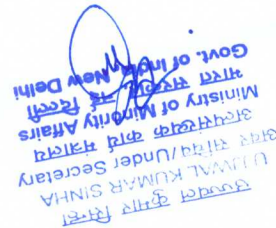 उज्ज्वल कुमार सिन्हा
UJJWAL KUMAR SINHA
अवर सचिव/Under Secretary
अल्पसंख्यक कार्य मंत्रालय
Ministry of Minority Affairs
भारत सरकार, नई दिल्ली
Govt. of India, New Delhi